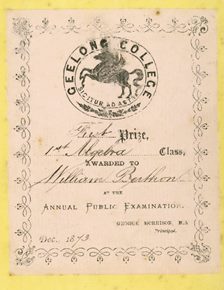 GEELONG COLLEGE
SIC ITUR AD ASTRA
First Prize,
1st Algebra Class,
AWARDED TO
William Berthon
AT THE
ANNUAL PUBLIC EXAMINATION.
GEORGE MORRISON, B.A
Principal.
Dec. 1873